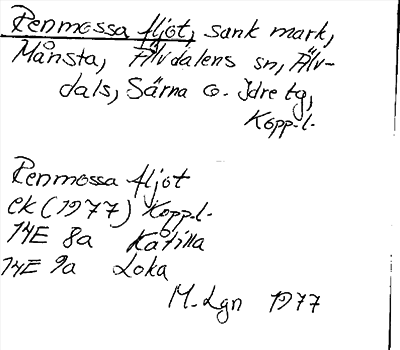 Renmossa fljot, sank mark,
Månsta, Älvdalens sn, Älv-
dals, Särna o. Idre tg,
Kopp.l.
Renmossa fljot
ek (1977) Kopp.l.
14E 8a Kåtilla
14E 9a Loka
M. Lgn 1977